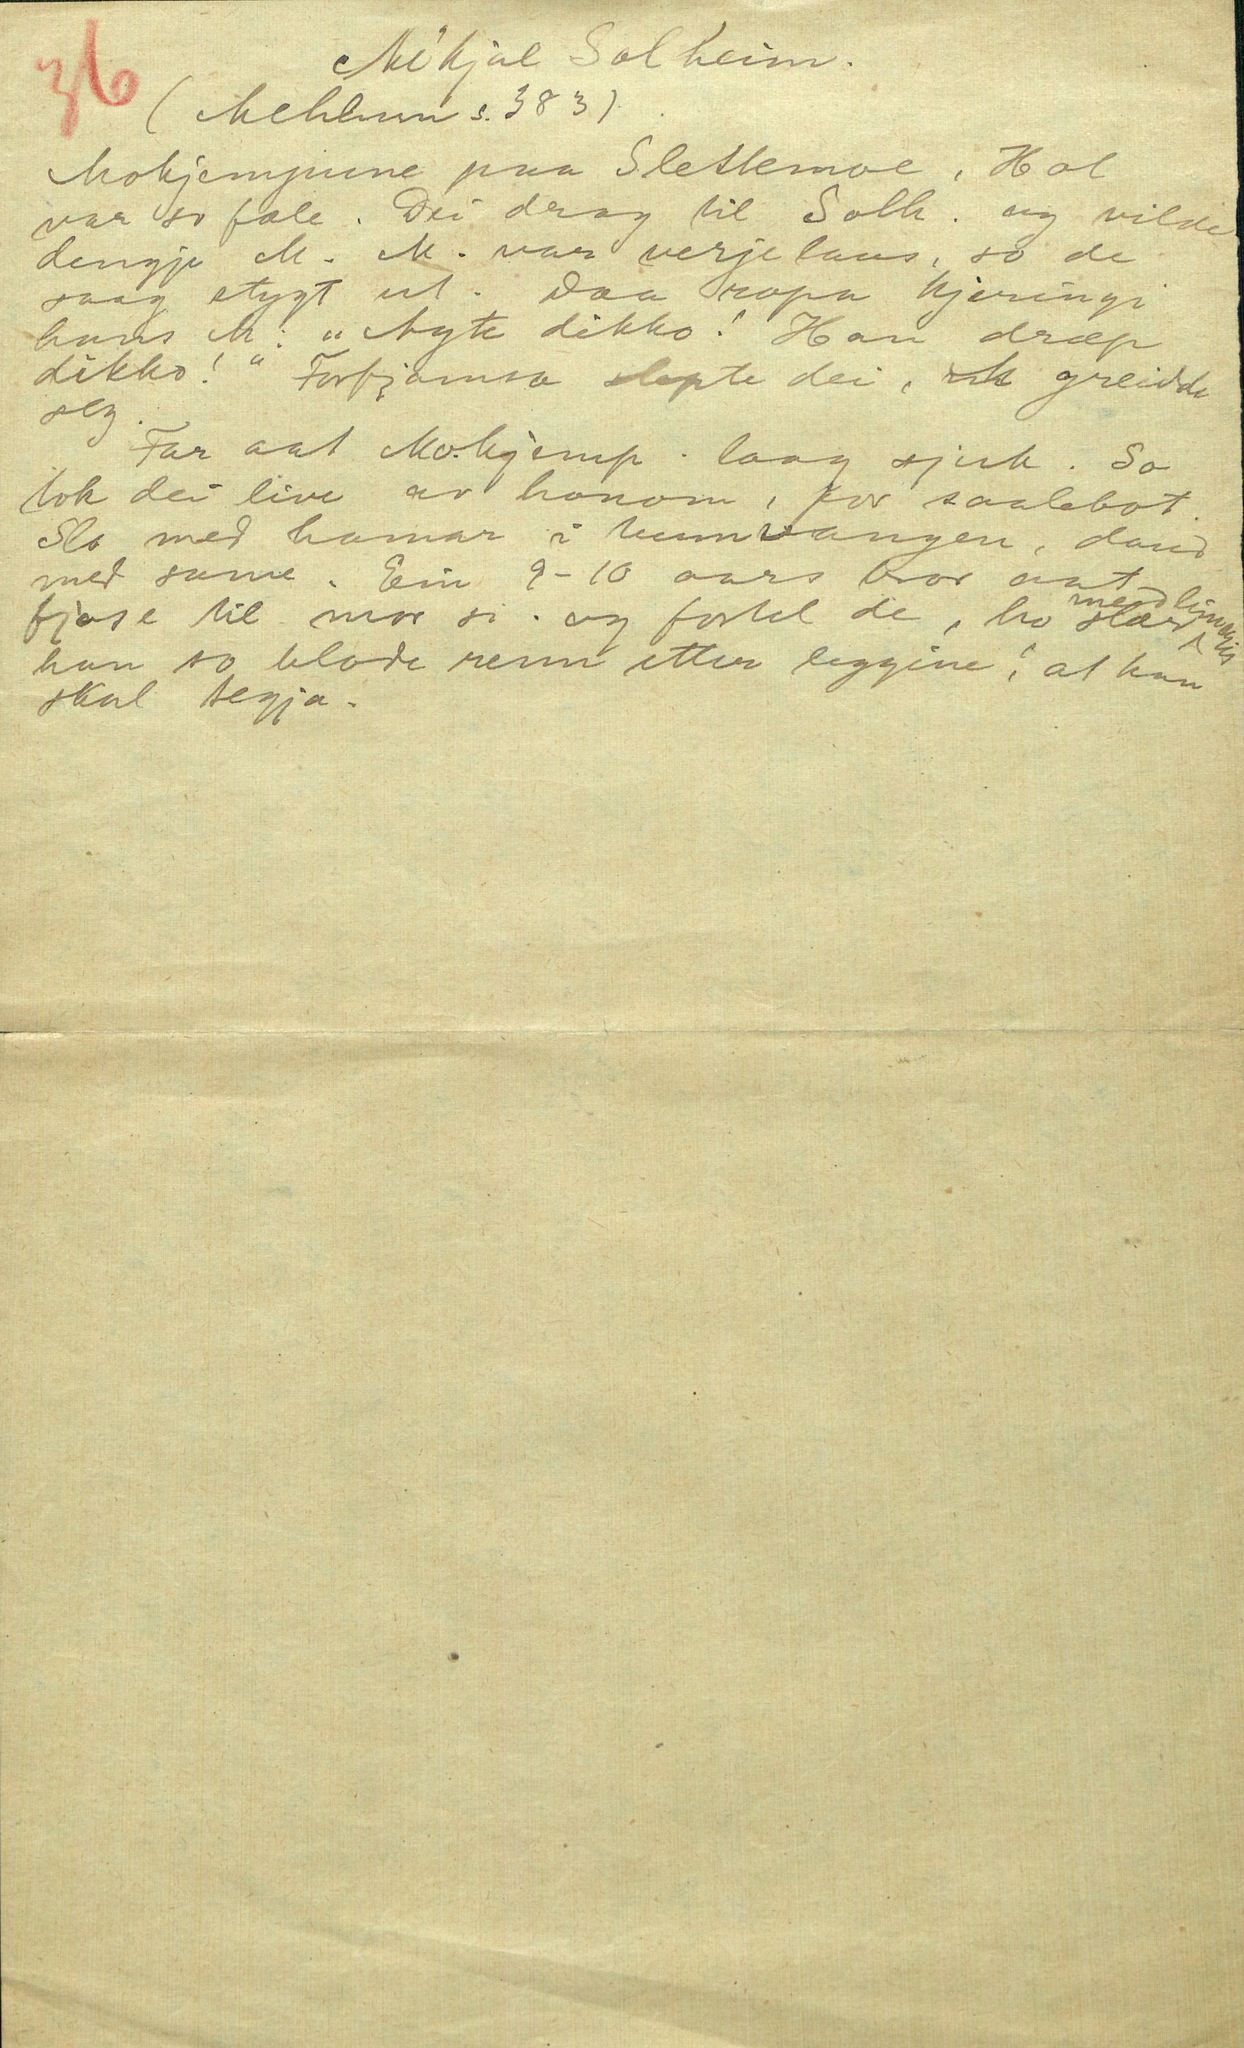 36
Mikjal Solheim.
(Mehlum s. 383)
Mokjempune paa Slettemoe, Hol
var so fæle. Dei drog til Solh. og vilde
dengje M. M. var verjelaus, so de
saag stygt ut. Daa ropa kjeringi
hans M: "Agte dikko! Han dræp
dikko!" Forfjamsa slepte dei, M greidde
seg.
Far aat Mokjemp. laag sjuk. So
tok dei live av honom, for saalebot.
Slo med hamar i tunnvangen, daud
med same. Ein 9-10 aars bror aat
fjøse til mor si. og fortel de, ho slær med limekjis
han so blode renn etter leggine, at han
skal tegja.